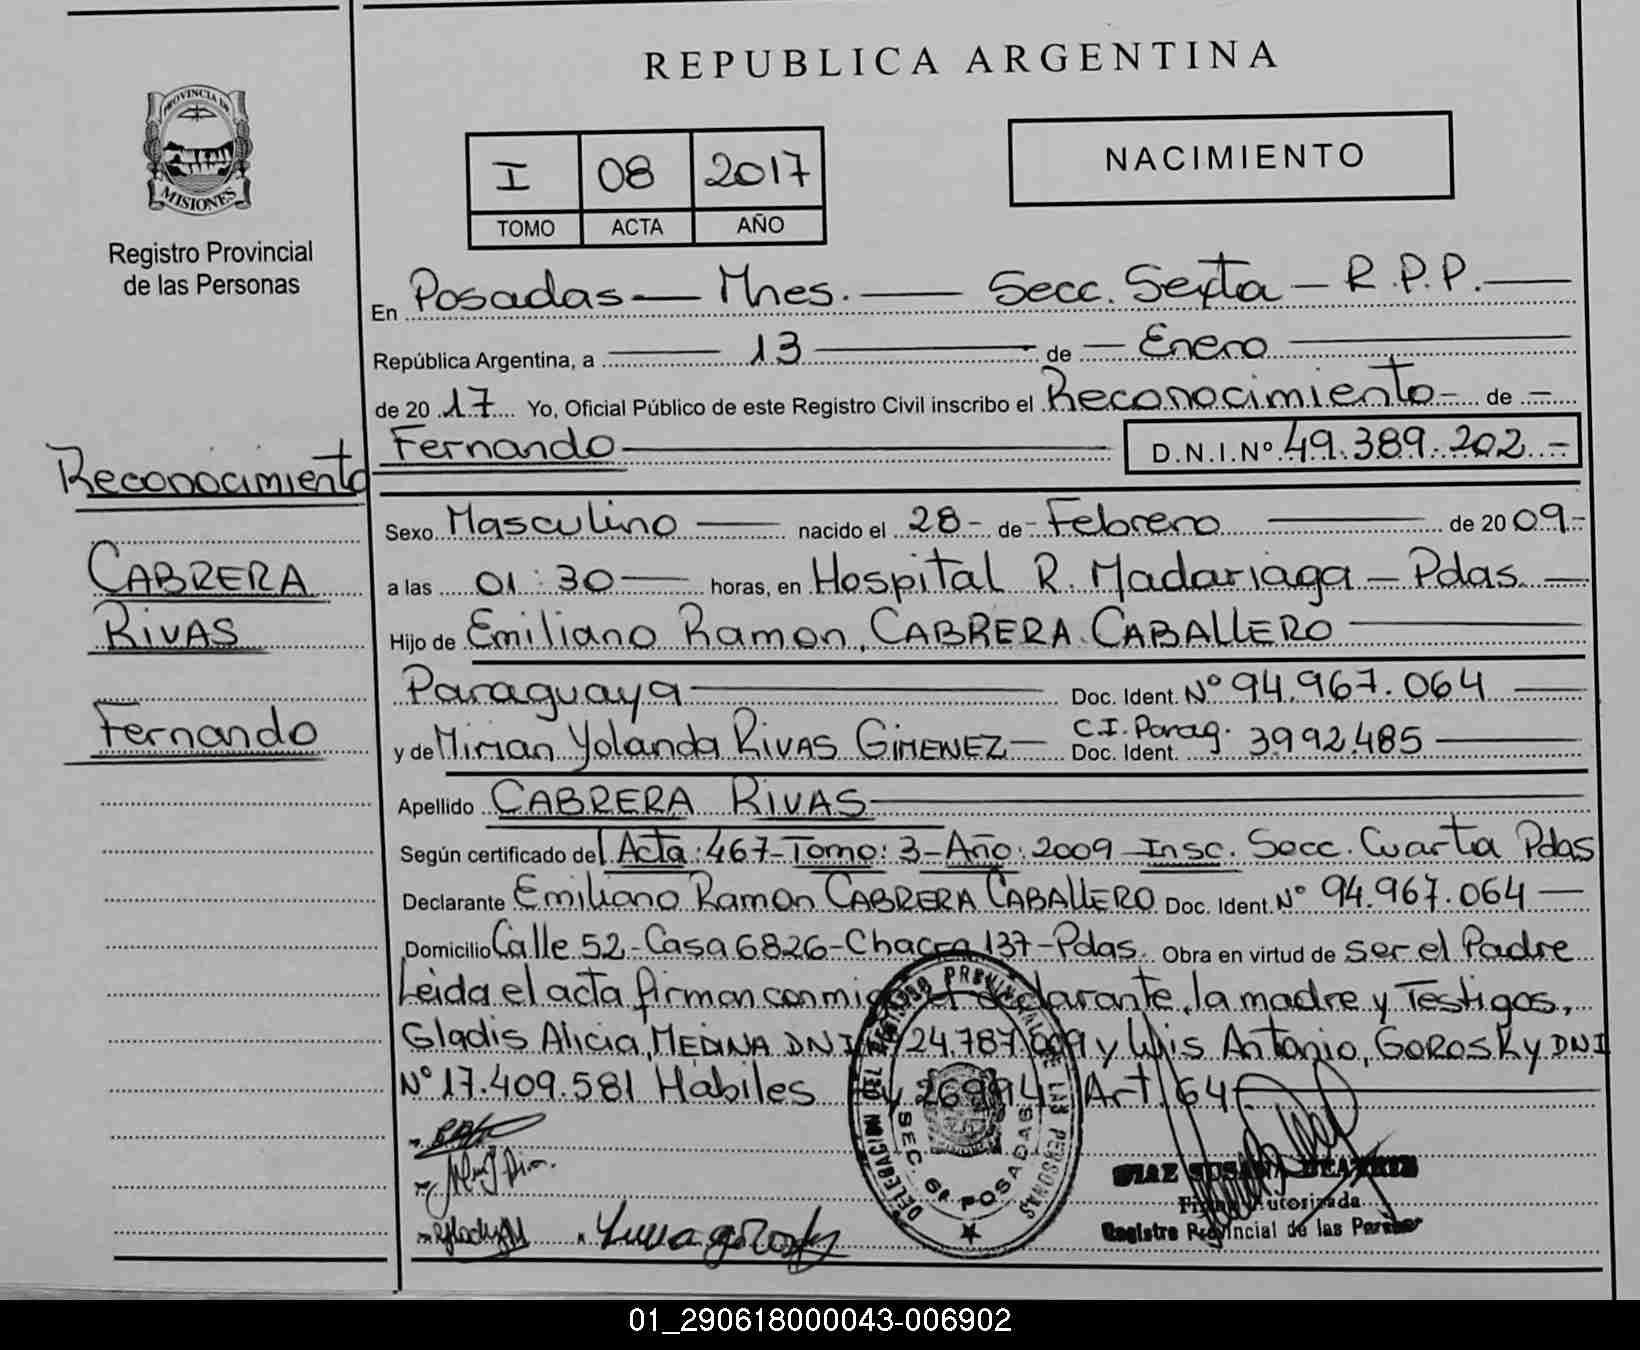 REPUBLICA ARGENTINA
PROVINCIA DE
MISIONES
Registro Provincial
de las Personas
I 08 2017
TOMO ACTA AÑO
NACIMIENTO
En Posadas — Mnes. — Secc. Sexta — R.P.P. —
República Argentina, a — 13 — de — Enero —
de 20 17 Yo, Oficial Público de este Registro Civil inscribo el Reconocimiento - de -
Fernando — D.N.I.Nº 49.389.202.-
Reconocimiento
CABRERA
RIVAS
Fernando
Sexo Masculino — nacido el 28 - de - Febrero — de 20 09.-
a las 01:30 — horas, en Hospital R. Madariaga — Pdas. —
Hijo de Emiliano Ramon, CABRERA CABALLERO —
Paraguaya — Doc. Ident. Nº 94.967.064 —
y de Mirian Yolanda RIVAS GIMENEZ — C.I. Parag. Doc. Ident. 3992.485 —
Apellido CABRERA RIVAS —
Según certificado del Acta: 467 - Tomo: 3 - Año: 2009 - Insc. Secc. Cuarta Pdas
Declarante Emiliano Ramon CABRERA CABALLERO Doc. Ident. Nº 94.967.064 —
Domicilio Calle 52 - Casa 6826 - Chacra 137 - Pdas. Obra en virtud de ser el Padre
Leida el acta firman conmigo el declarante, la madre y Testigos,
Gladis Alicia, MEDINA DNI 24.787.009 y Luis Antonio, GOROSKY DNI
Nº 17.409.581 Hábiles Ley 26994 Art. 64
REGISTRO PROVINCIAL DE LAS PERSONAS
DELEGACION
SEC. 6ª POSADAS
DIAZ SUSANA BEATRIZ
Firma Autorizada
Registro Provincial de las Personas
01_290618000043-006902